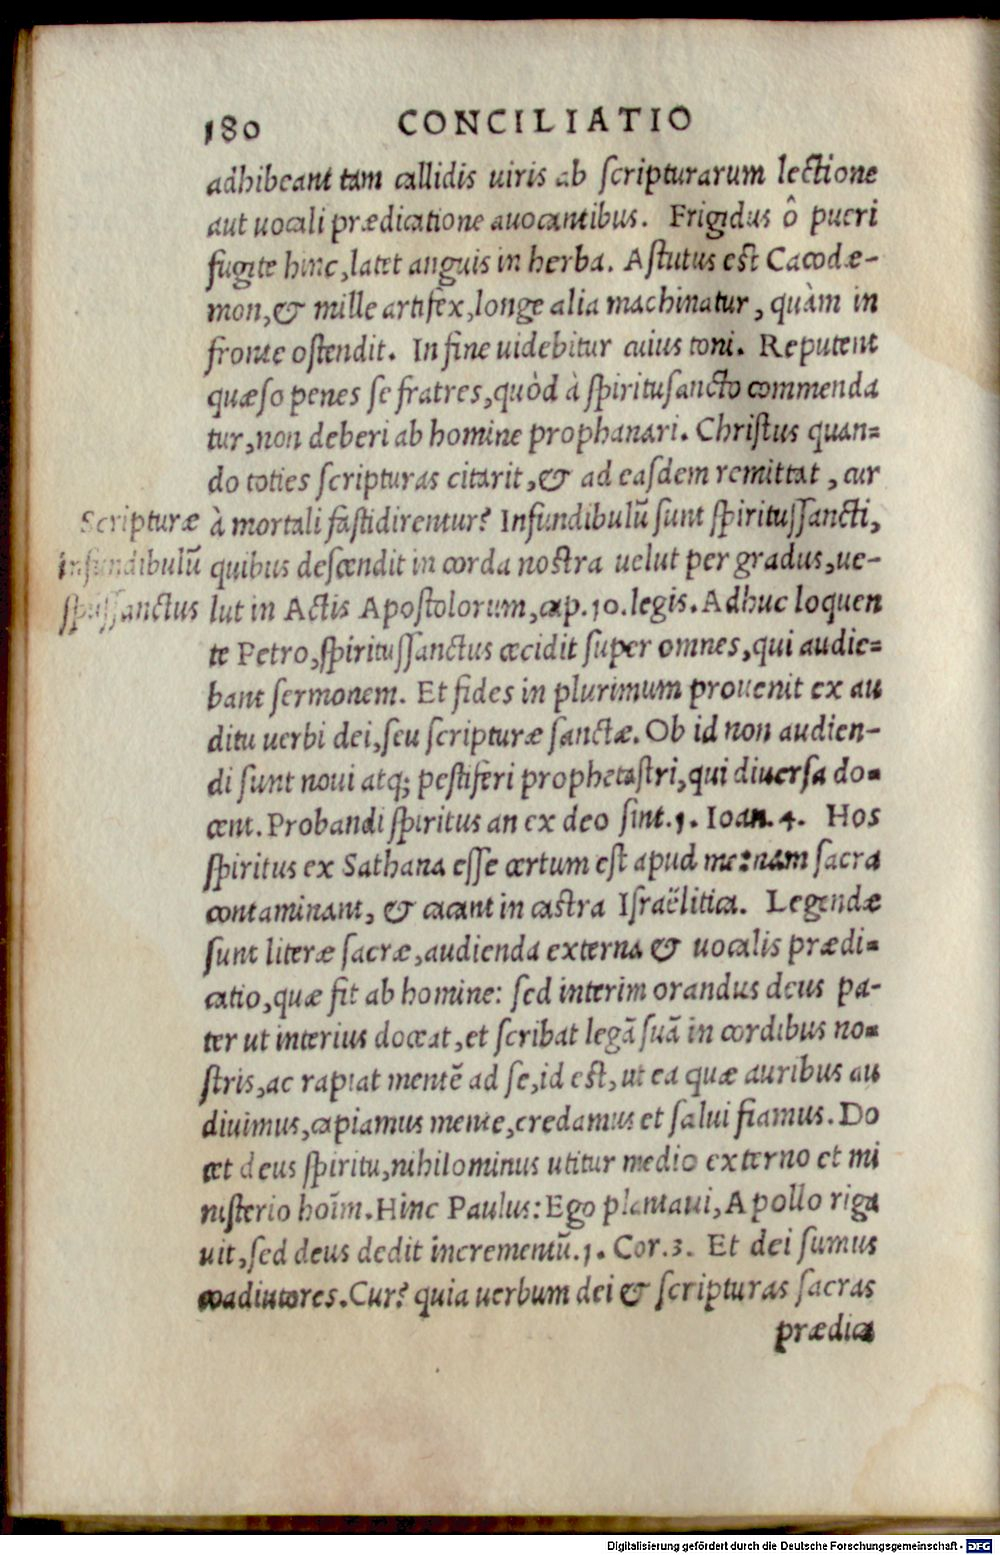 180 CONCILIATIO
adhibeant tam callidis uiris ab scripturarum lectione
aut uocali prædicatione auocantibus. Frigidus ô pueri
fugite hinc, latet anguis in herba. Astutus est Cacodæ-
mon, & mille artifex, longe alia machinatur, quàm in
fronte ostendit. In fine uidebitur cuius toni. Reputent
quæso penes se fratres, quòd à spiritusancto commenda
tur, non deberi ab homine prophanari. Christus quan=
do toties scripturas citarit, & ad easdem remittat, cur
à mortali fastidirentur? Infundibulũ sunt spiritussancti,
quibus descendit in corda nostra uelut per gradus, ue-
lut in Actis Apostolorum, cap. 10. legis. Adhuc loquen
te Petro, spiritussanctus cecidit super omnes, qui audie=
bant sermonem. Et fides in plurimum prouenit ex au
ditu uerbi dei, seu scripturæ sanctæ. Ob id non audien-
di sunt noui atq; pestiferi prophetastri, qui diuersa do=
cent. Probandi spiritus an ex deo sint. 1. Ioan. 4. Hos
spiritus ex Sathana esse certum est apud me: nam sacra
contaminant, & cacant in castra Israëlitica. Legendæ
sunt literæ sacræ, audienda externa & uocalis prædi=
catio, quæ fit ab homine: sed interim orandus deus pa-
ter ut interius doceat, et scribat legẽ suã in cordibus no=
stris, ac rapiat mentẽ ad se, id est, ut ea quæ auribus au
diuimus, capiamus mente, credamus et salui fiamus. Do
cet deus spiritu, nihilominus utitur medio externo et mi
nisterio hoĩm. Hinc Paulus: Ego plantaui, Apollo riga
uit, sed deus dedit incrementũ. 1. Cor. 3. Et dei sumus
coadiutores. Cur? quia uerbum dei & scripturas sacras
prædica
Scripturæ
infundibulũ
spũssanctus
Digitalisierung gefördert durch die Deutsche Forschungsgemeinschaft - DFG